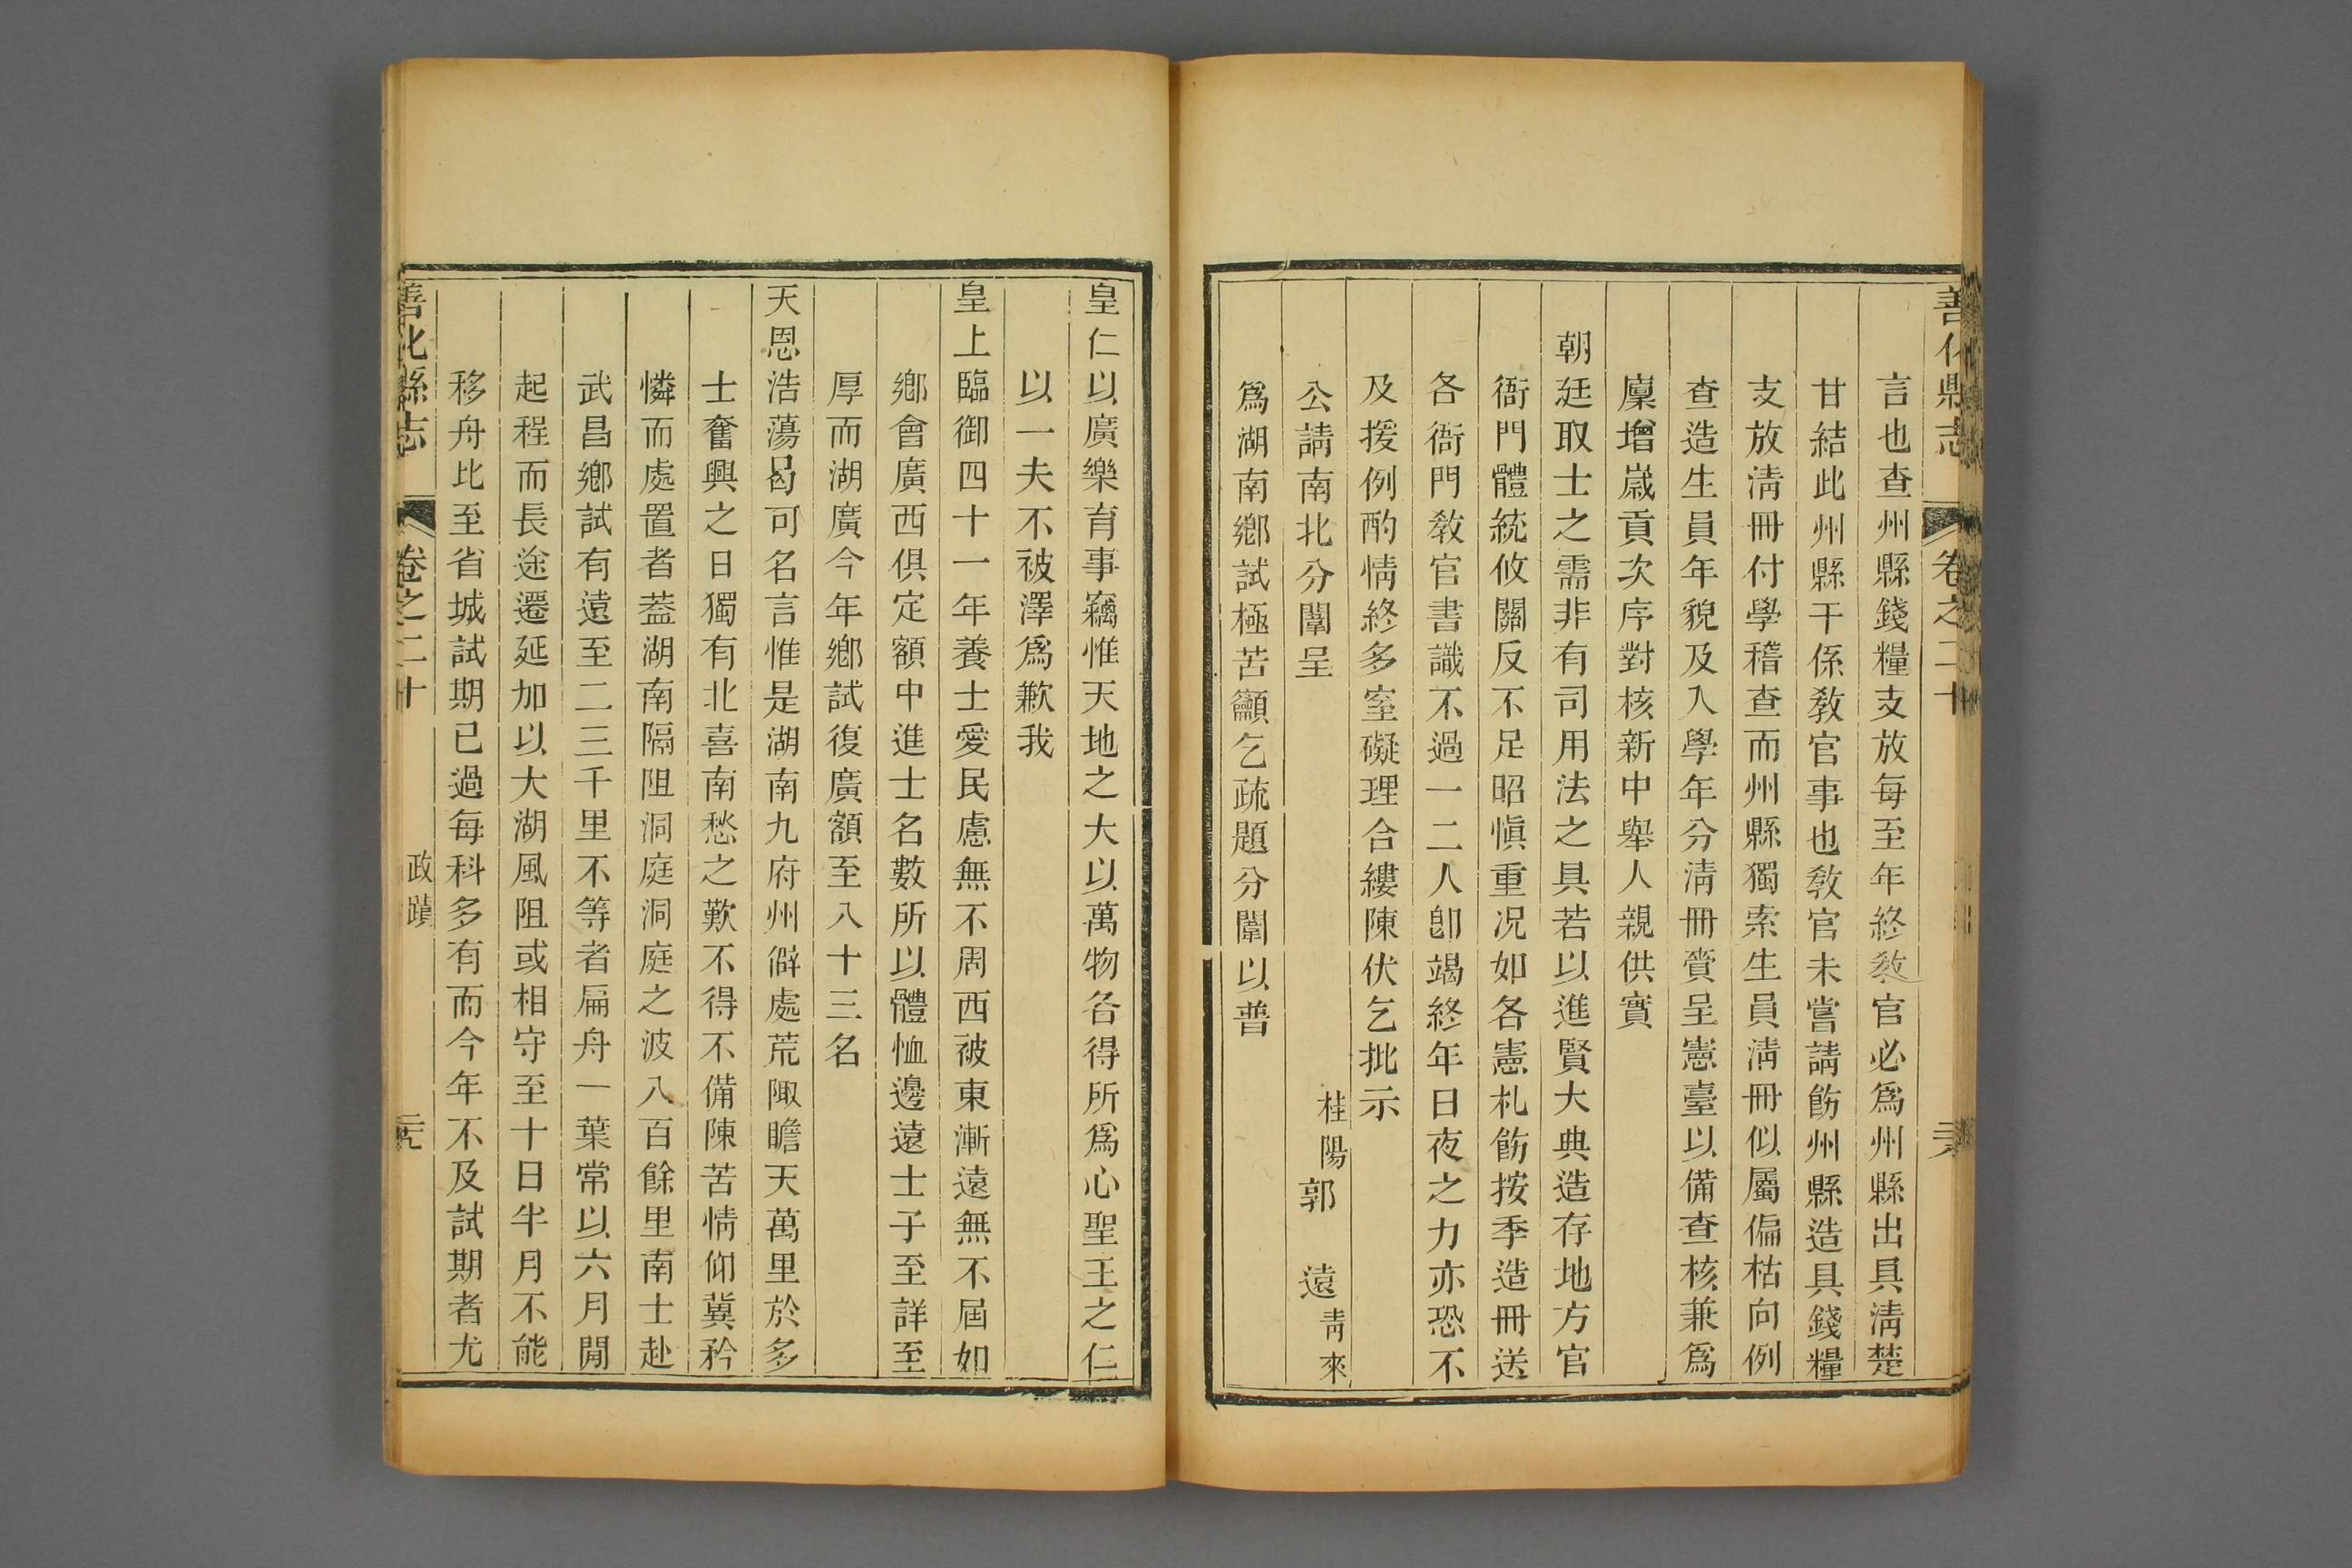 善化縣志 卷之二十
言也查州縣錢糧支放每至年終教官必爲州縣出具淸楚
甘結此州縣干係敎官事也敎官未嘗請飭州縣造具錢糧
支放淸冊付學稽查而州縣獨索生員淸冊似屬偏枯向例
查造生員年貌及入學年分淸冊賫呈憲臺以備查核兼爲
廩增嵗貢次序對核新中舉人親供實
朝廷取士之需非有司用法之具若以進賢大典造存地方官
衙門體統攸關反不足昭愼重况如各憲札飭按季造冊送
各衙門敎官書識不過一二人卽竭終年日夜之力亦恐不
及援例酌情終多窒礙理合縷陳伏乞批示
公請南北分闈呈 桂陽郭 遠靑來
爲湖南鄉試極苦籲乞疏題分闈以普
皇仁以廣樂育事竊惟天地之大以萬物各得所爲心聖王之仁
以一夫不被澤爲歉我
皇上臨御四十一年養士愛民慮無不周西被東漸遠無不屆如
鄉會廣西俱定額中進士名數所以體恤邊遠士子至詳至
厚而湖廣今年鄉試復廣額至八十三名
天恩浩蕩曷可名言惟是湖南九府州僻處荒陬瞻天萬里於多
士奮興之日獨有北喜南愁之歎不得不備陳苦情仰冀矜
憐而處置者葢湖南隔阻洞庭洞庭之波八百餘里南士赴
武昌鄉試有遠至二三千里不等者扁舟一葉常以六月閒
起程而長途遷延加以大湖風阻或相守至十日半月不能
移舟比至省城試期已過每科多有而今年不及試期者尤
善化縣志 卷之二十 政蹟 元